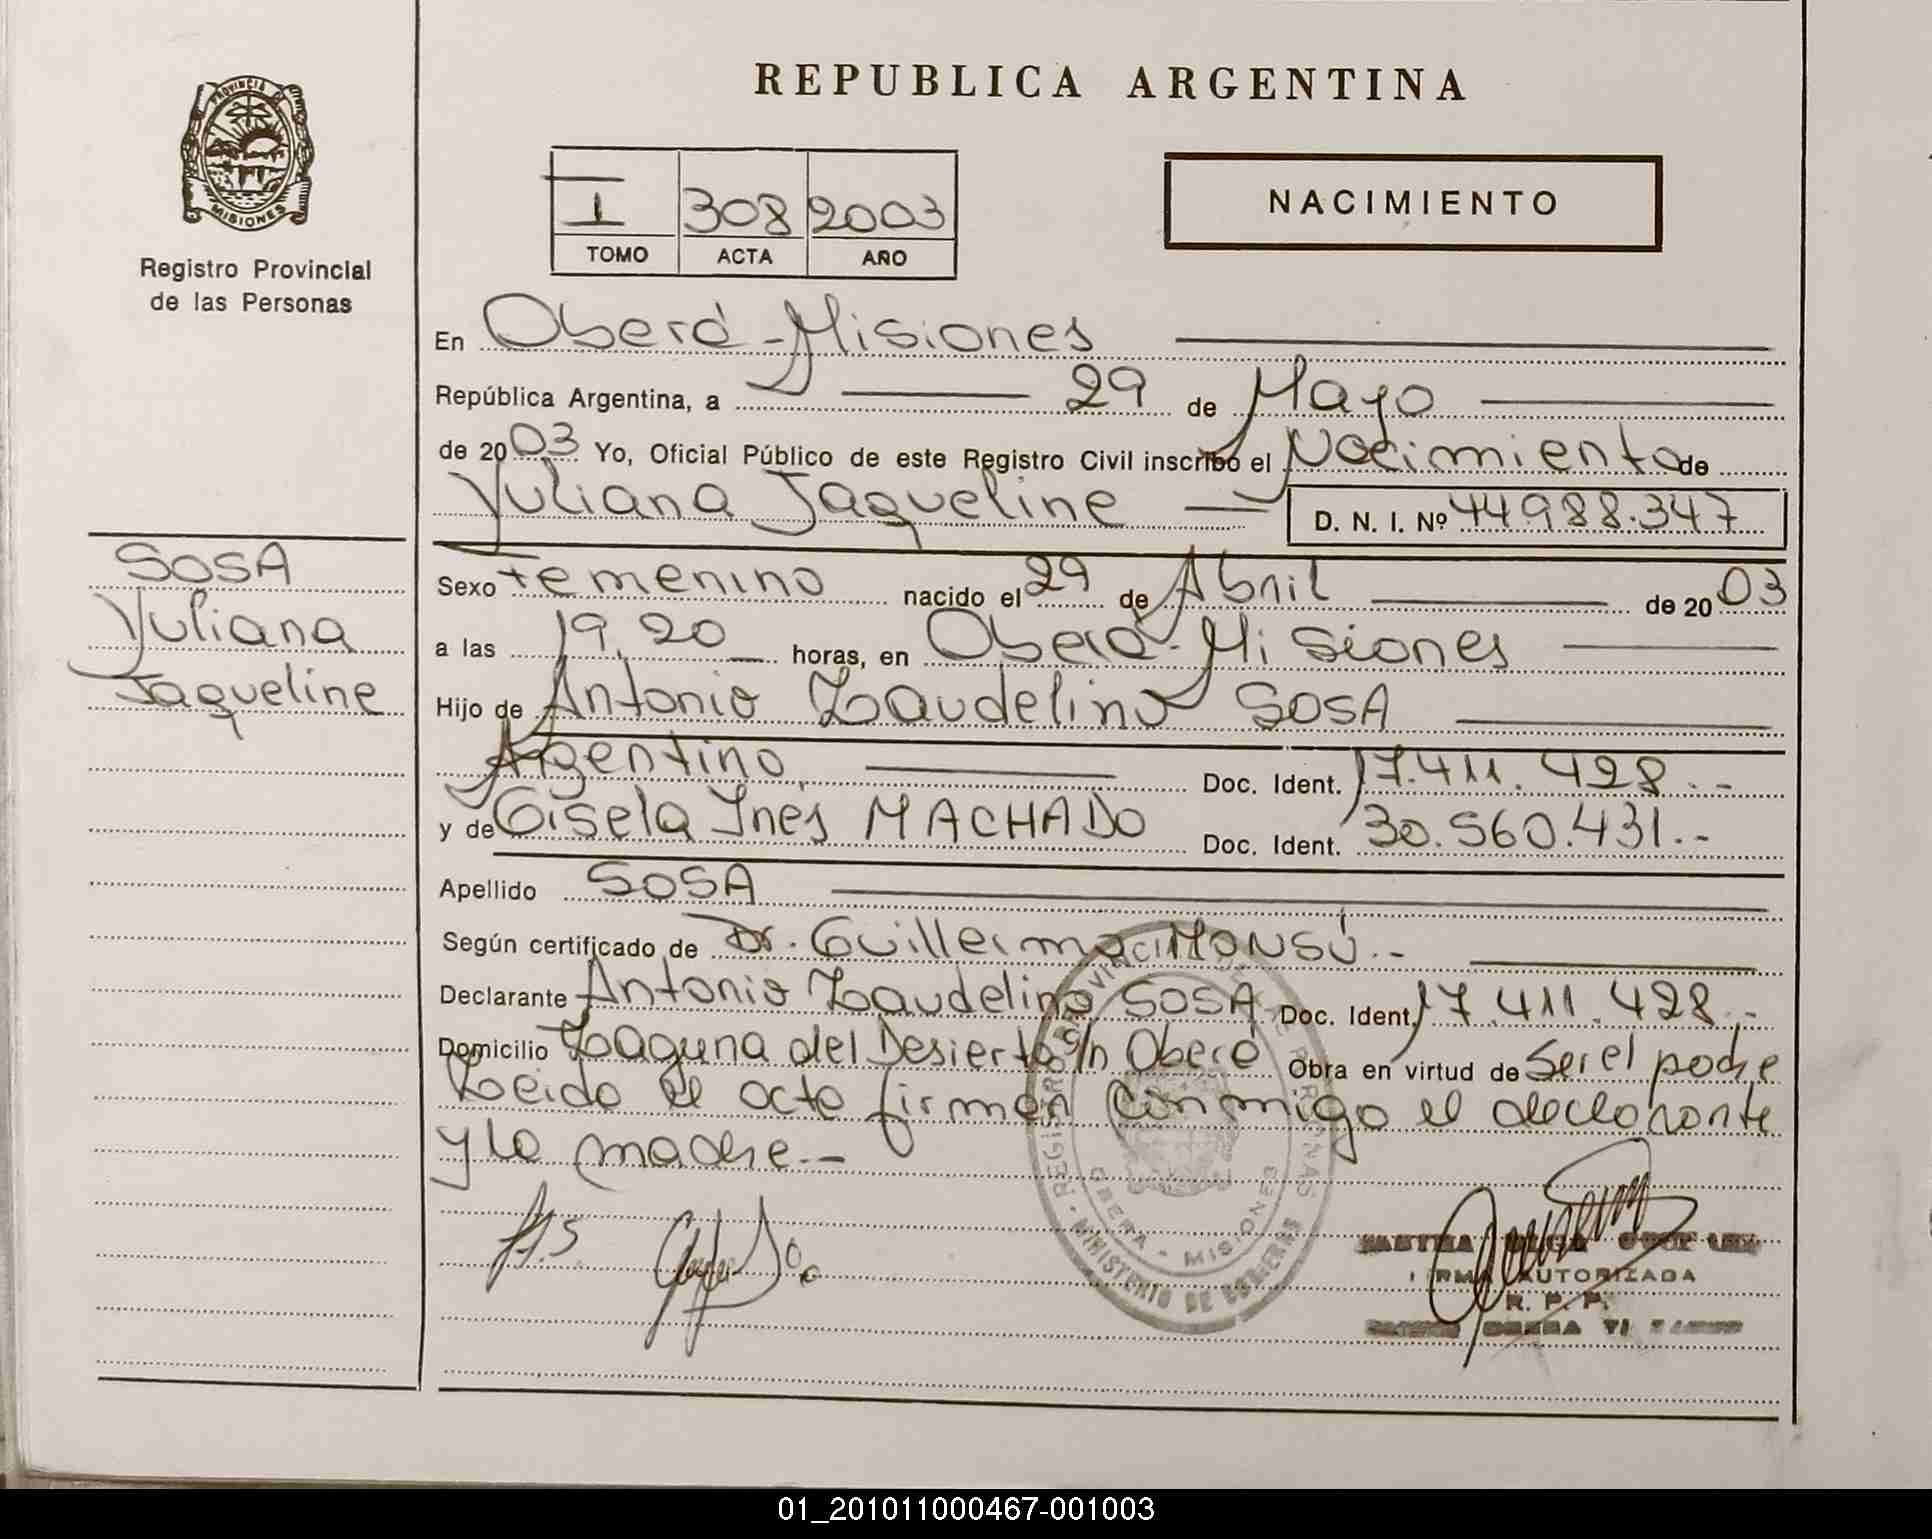 REPUBLICA ARGENTINA
PROVINCIA DE MISIONES
Registro Provincial
de las Personas
I 308 2003
TOMO ACTA AÑO
NACIMIENTO
En Oberá - Misiones
República Argentina, a 29 de Mayo
de 2003 Yo, Oficial Público de este Registro Civil inscribo el Nacimiento de
Yuliana Jaqueline D. N. I. Nº 44.988.347
SOSA
Yuliana
Jaqueline
Sexo Femenino nacido el 29 de Abril de 2003
a las 19,20 horas, en Oberá - Misiones
Hijo de Antonio Laudelino SOSA
Argentino Doc. Ident. 17.411.428.-
y de Gisela Inés MACHADO Doc. Ident. 30.560.431.-
Apellido SOSA
Según certificado de Dr. Guillermo MONSÚ.-
Declarante Antonio Laudelino SOSA Doc. Ident. 17.411.428.-
Domicilio Laguna del Desierto s/n Oberá Obra en virtud de Ser el padre
Leido el acto firman conmigo el declarante
y la madre.-
A.S
REGISTRO PROVINCIAL DE LAS PERSONAS
OBERA - MISIONES
MINISTERIO DE GOBIERNO
FIRMA AUTORIZADA
R. P. P.
01_201011000467-001003